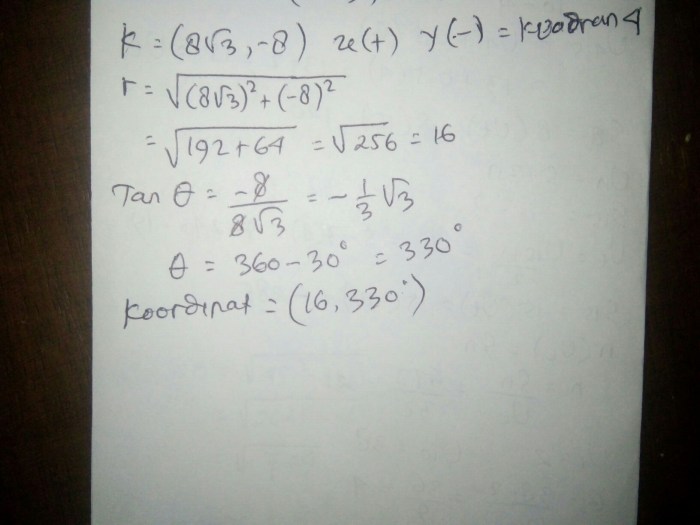 K = (8√3, -8) x(+) y(-) = kuadran 4
r = √(8√3)² + (-8)²
= √192 + 64 = √256 = 16
Tan θ = -8/8√3 = -1/3 √3
θ = 360 - 30° = 330°
Koordinat = (16, 330°)